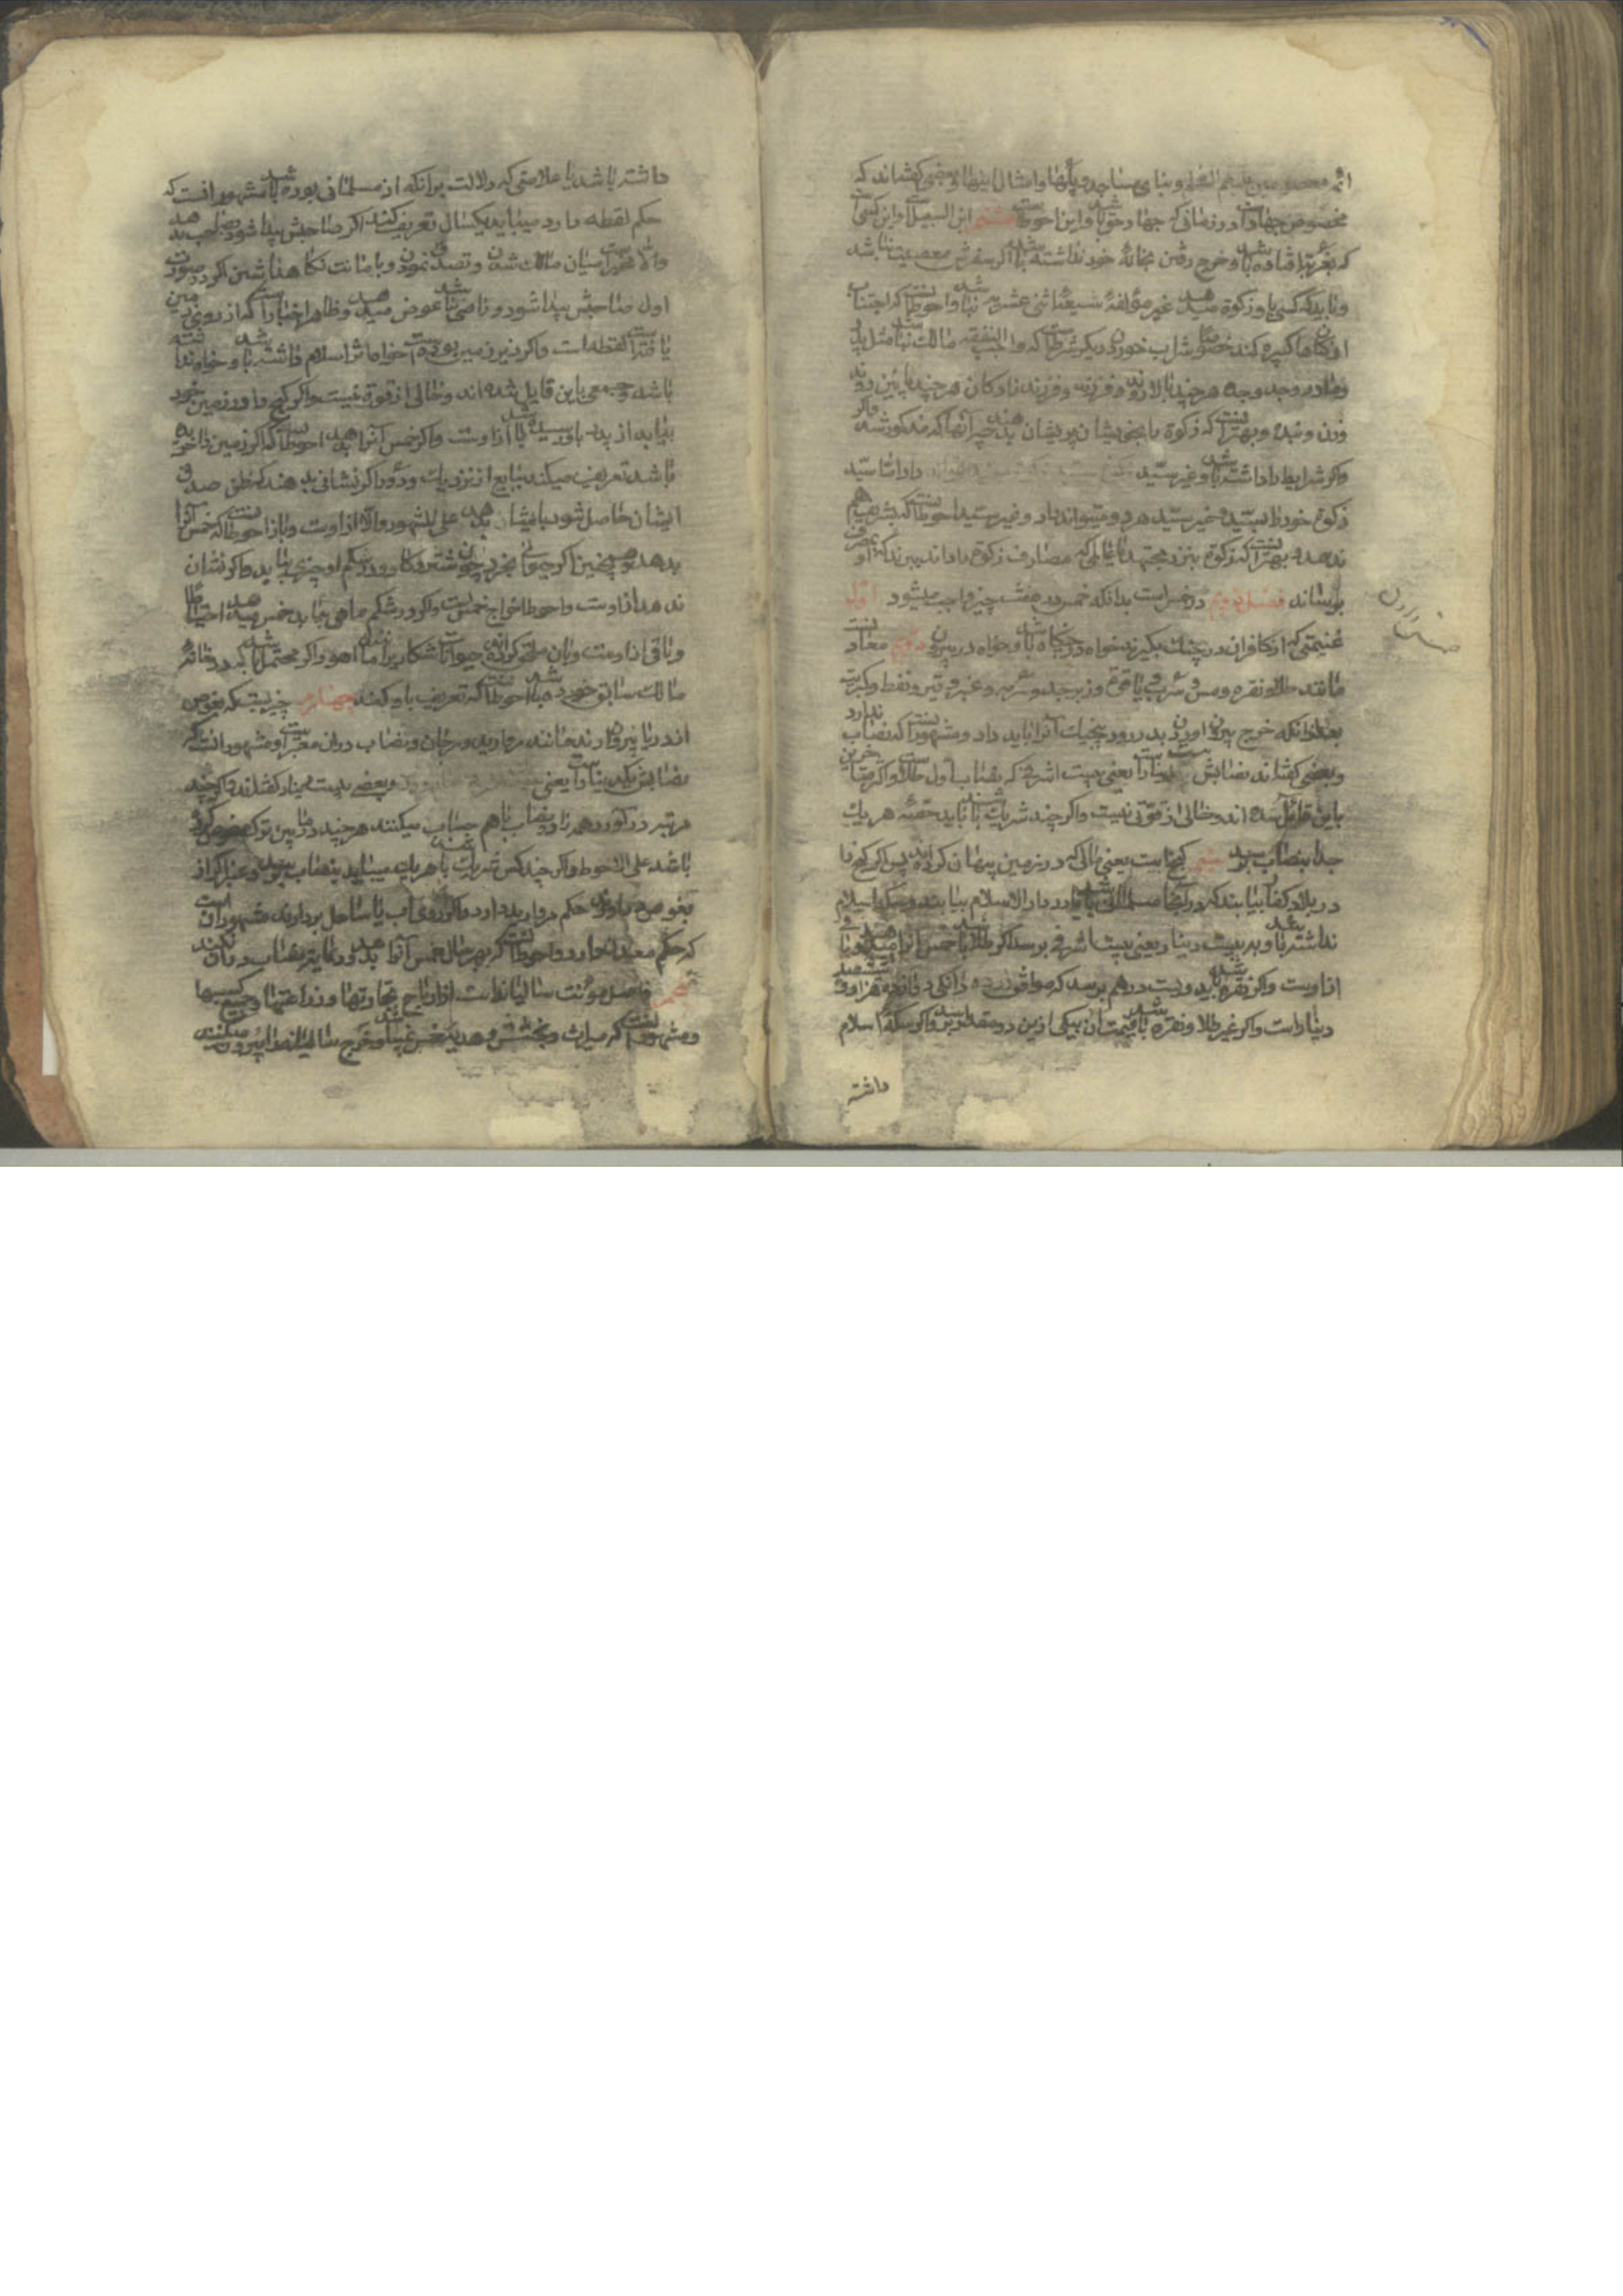 ائمه معصومین علیهم السلم و بنای مساجد و پلها و امثال اینها و بعضی گفته‌اند که
مخصوص جهاد است در زمانی که جهاد حق باشد و این احوطست هشتم ابن السبیل است و این کسی است
که بغربت افتاده باشد و خرج رفتن بخانهٔ خود نداشته باشد اگر سفرش معصیت نباشد
و باید که کسی باو زکوة میدهد غیر مؤلفه شیعهٔ اثنی عشریه باشد و احوط آنست که اجتناب
از گناهان کبیره کند خصوصا شراب خوردن و دیگر شرطست که واجب النفقه مالک نباشد مثل پدر
و مادر و جد و جده هر چند بالا روند و فرزند و فرزند زادگان هر چند پائین روند
و زن و بنده و بهتر آنست که زکوة بایخویشان پریشان بدهند غیر آنها که مذکور شد و اگر
و اگر شرایط را داشته باشد و غیر سید داد اما سید
زکوة خود را بسید و غیر سید هر دو میتواند داد و غیر سید احوط آنست که بسید هم
ندهد و بهتر آنست که زکوة بنزد مجتهد یا عالمی که مصارف زکوة را داند ببرند که او بمصرف
برساند فصل دویم در خمس است بدانکه خمس در هفت چیز واجب میشود اول
غنیمتی که از کافران در جنگ بگیرند خواه در جنگاه باشد و خواه در بیرون دویم معادنست
مانند طلا و نقره و مس و سرب و یاقوت و زبرجد و سرمه و عنبر و قیر و نفط و کبریت
بعد از آنکه خرج بیرون آوردن بدر رود پنجیک آنرا باید داد و مشهور آنست که نصاب ندارد
و بعضی گفته‌اند نصابش بیست دینار است یعنی بیست اشرفی که نصاب اول طلاست و اکثر متاخرین
باین قایل شده‌اند و خالی از قوتی نیست و اگر چند شریک باشند باید حصهٔ هر یک
جدا بنصاب برسد سیم گنجست یعنی مالی که در زمین پنهان کرده‌اند پس اگر گنج را
در بلاد کفار بیابند که در آنجا مسلمانی نباشد یا در دار الاسلام بیابند و سکه اسلام
نداشته باشد و به بیست دینار یعنی بیست اشرفی برسد اگر طلا باشد خمس آنرا میدهد و باقی
از اوست و اگر نقره باشد باید دویست درهم برسد که موافق دانکی و هزار و ششصد
دینار است و اگر غیر طلا و نقره باشد قیمت آن بیکی ازین دو مقدار برسد و اگر سکهٔ اسلام
داشته
داشته باشد یا علامتی که دلالت بر آنکه از مسلمانی بوده باشد مشهور آنست که
حکم لقطه دارد میباید یکسال تعریف کند اگر صاحبش پیدا شود بصاحب بدهد
والا مخیر است میان مالک شدن و تصدق نمودن و بامانت نگاهداشتن اگر در صورت
اول صاحبش پیدا شود و راضی نباشد عوض میدهد و ظاهر اخبار است که از روی زمین
یافته لقطه است و اگر در زیر زمین بوده است خواه اثر اسلام داشته باشد و خواه نداشته
باشد و جمعی باین قایل شده‌اند و خالی از قوة نیست و اگر گنج را در زمین خود
بیابد از پدر باو رسیده باشد از اوست و اگر خمس آنرا بدهد احوطست که اگر زمین را خریده
باشد تعریف میکند ببایع از نزدیک و دور اگر نشانی بدهند که ظن صدق
ایشان حاصل شود بایشان بدهد علی المشهور والا از اوست و باز احوط آنست که خمس آنرا
بدهد و همچنین اگر حیوانی بخرد چون شتر و گاو و در شکم او چیزی بیابد و اگر نشان
ندهد از اوست و احوط اخراج خمس است و اگر در شکم ماهی بیابد خمس میدهد احتیاطا
و باقی از اوست و بآن ملحق کرده‌اند حیوانات شکاری را مانند آهو و اگر محتمل باشد که در خانهٔ
مالک سابق خورده باشد احوط آنست که تعریف باو کند چهارم چیزیست که بغوص
از دریا بیرون آرند مانند مروارید و مرجان و نصاب در آن معتبر است و مشهور آنست که
نصابش یکدینار است یعنی و بعضی بیست دینار گفته‌اند و اگر چند
مرتبه در آورد همه را در نصاب با هم حساب میکنند هر چند در ما بین ترک غوص کرده
باشد علی الاحوط و اگر چند کس شریک باشند هر یک میباید بنصاب برسد و عنبر اگر از
بغوص در آورند حکم مروارید دارد و اگر از روی آب یا ساحل بردارند مشهور آنست
که حکم معدن دارد و احوط آنست که بهر حال خمس آنرا بدهد و رعایت نصاب در آن نکند
پنجم فاضل مؤنت سالیانه است از ارباح تجارتها و زراعتها و جمیع کسبها
و مشهور آنست که میراث و بخشش و هدیه خمس نمیباشد و خرج سالیانه را بیرون میکنند